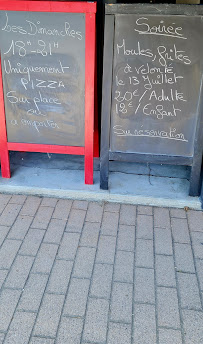 Les Dimanches
18h-21h
Uniquement
PIZZA
Sur place
ou
a emporter
Soirée
Moules frites
a volonté
le 13 Juillet
20€/Adulte
18€/Enfant
Sur réservation